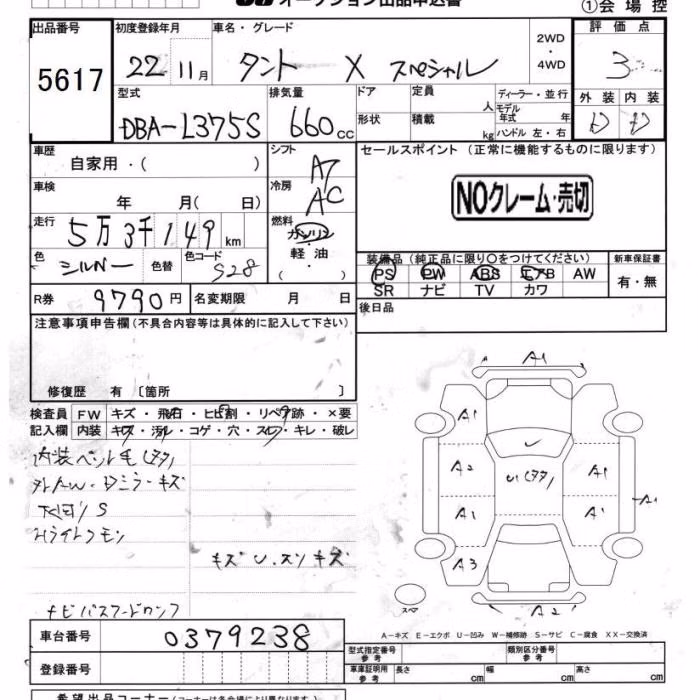 オークション出品申込書
①会場控
出品番号 初度登録年月 車名・グレード 2WD・4WD 評価点
5617
22 11月 タント X スペシャル 3
型式 排気量 ドア 定員 人 ディーラー・並行 外装 内装
DBA-L375S 660cc 形状 積載 kg モデル年式 年 ハンドル 左・右
車歴 シフト セールスポイント (正常に機能するものに限ります)
自家用・( ) A7
車検 冷房 NOクレーム・売切
年 月( 日) AC
走行 燃料
5万3千149km ガソリン・軽油・( )
色 シルバー 色替 色コード S28
装備品 (純正品に限り○をつけてください) 新車保証書
PS PW ABS エアB AW 有・無
SR ナビ TV カワ
R券 9790円 名変期限 月 日 後日品
注意事項申告欄(不具合内容等は具体的に記入して下さい)
修復歴 有 〔箇所 〕
検査員 FW キズ・飛石・ヒビ割・リペア跡・×要
記入欄 内装 キズ・汚れ・コゲ・穴・スレ・キレ・破レ
下回リ S
キズ U.スリキズ
A1
A1
A2 U1 A1
A1 A1 A1
A3
スペア A2
A-キズ E-エクボ U-凹み W-補修跡 S-サビ C-腐食 XX-交換済
車台番号 0379238
型式指定番号 参考 類別区分番号 参考
登録番号 車庫証明用 参考 長さ cm 幅 cm 高さ cm
希望出品コーナー(コーナーは各会場により異なります。)